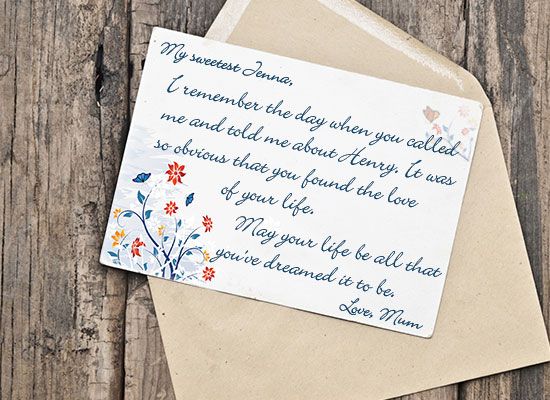 My sweetest Jenna,
I remember the day when you called
me and told me about Henry. It was
so obvious that you found the love
of your life.
May your life be all that
you've dreamed it to be.
Love, Mum